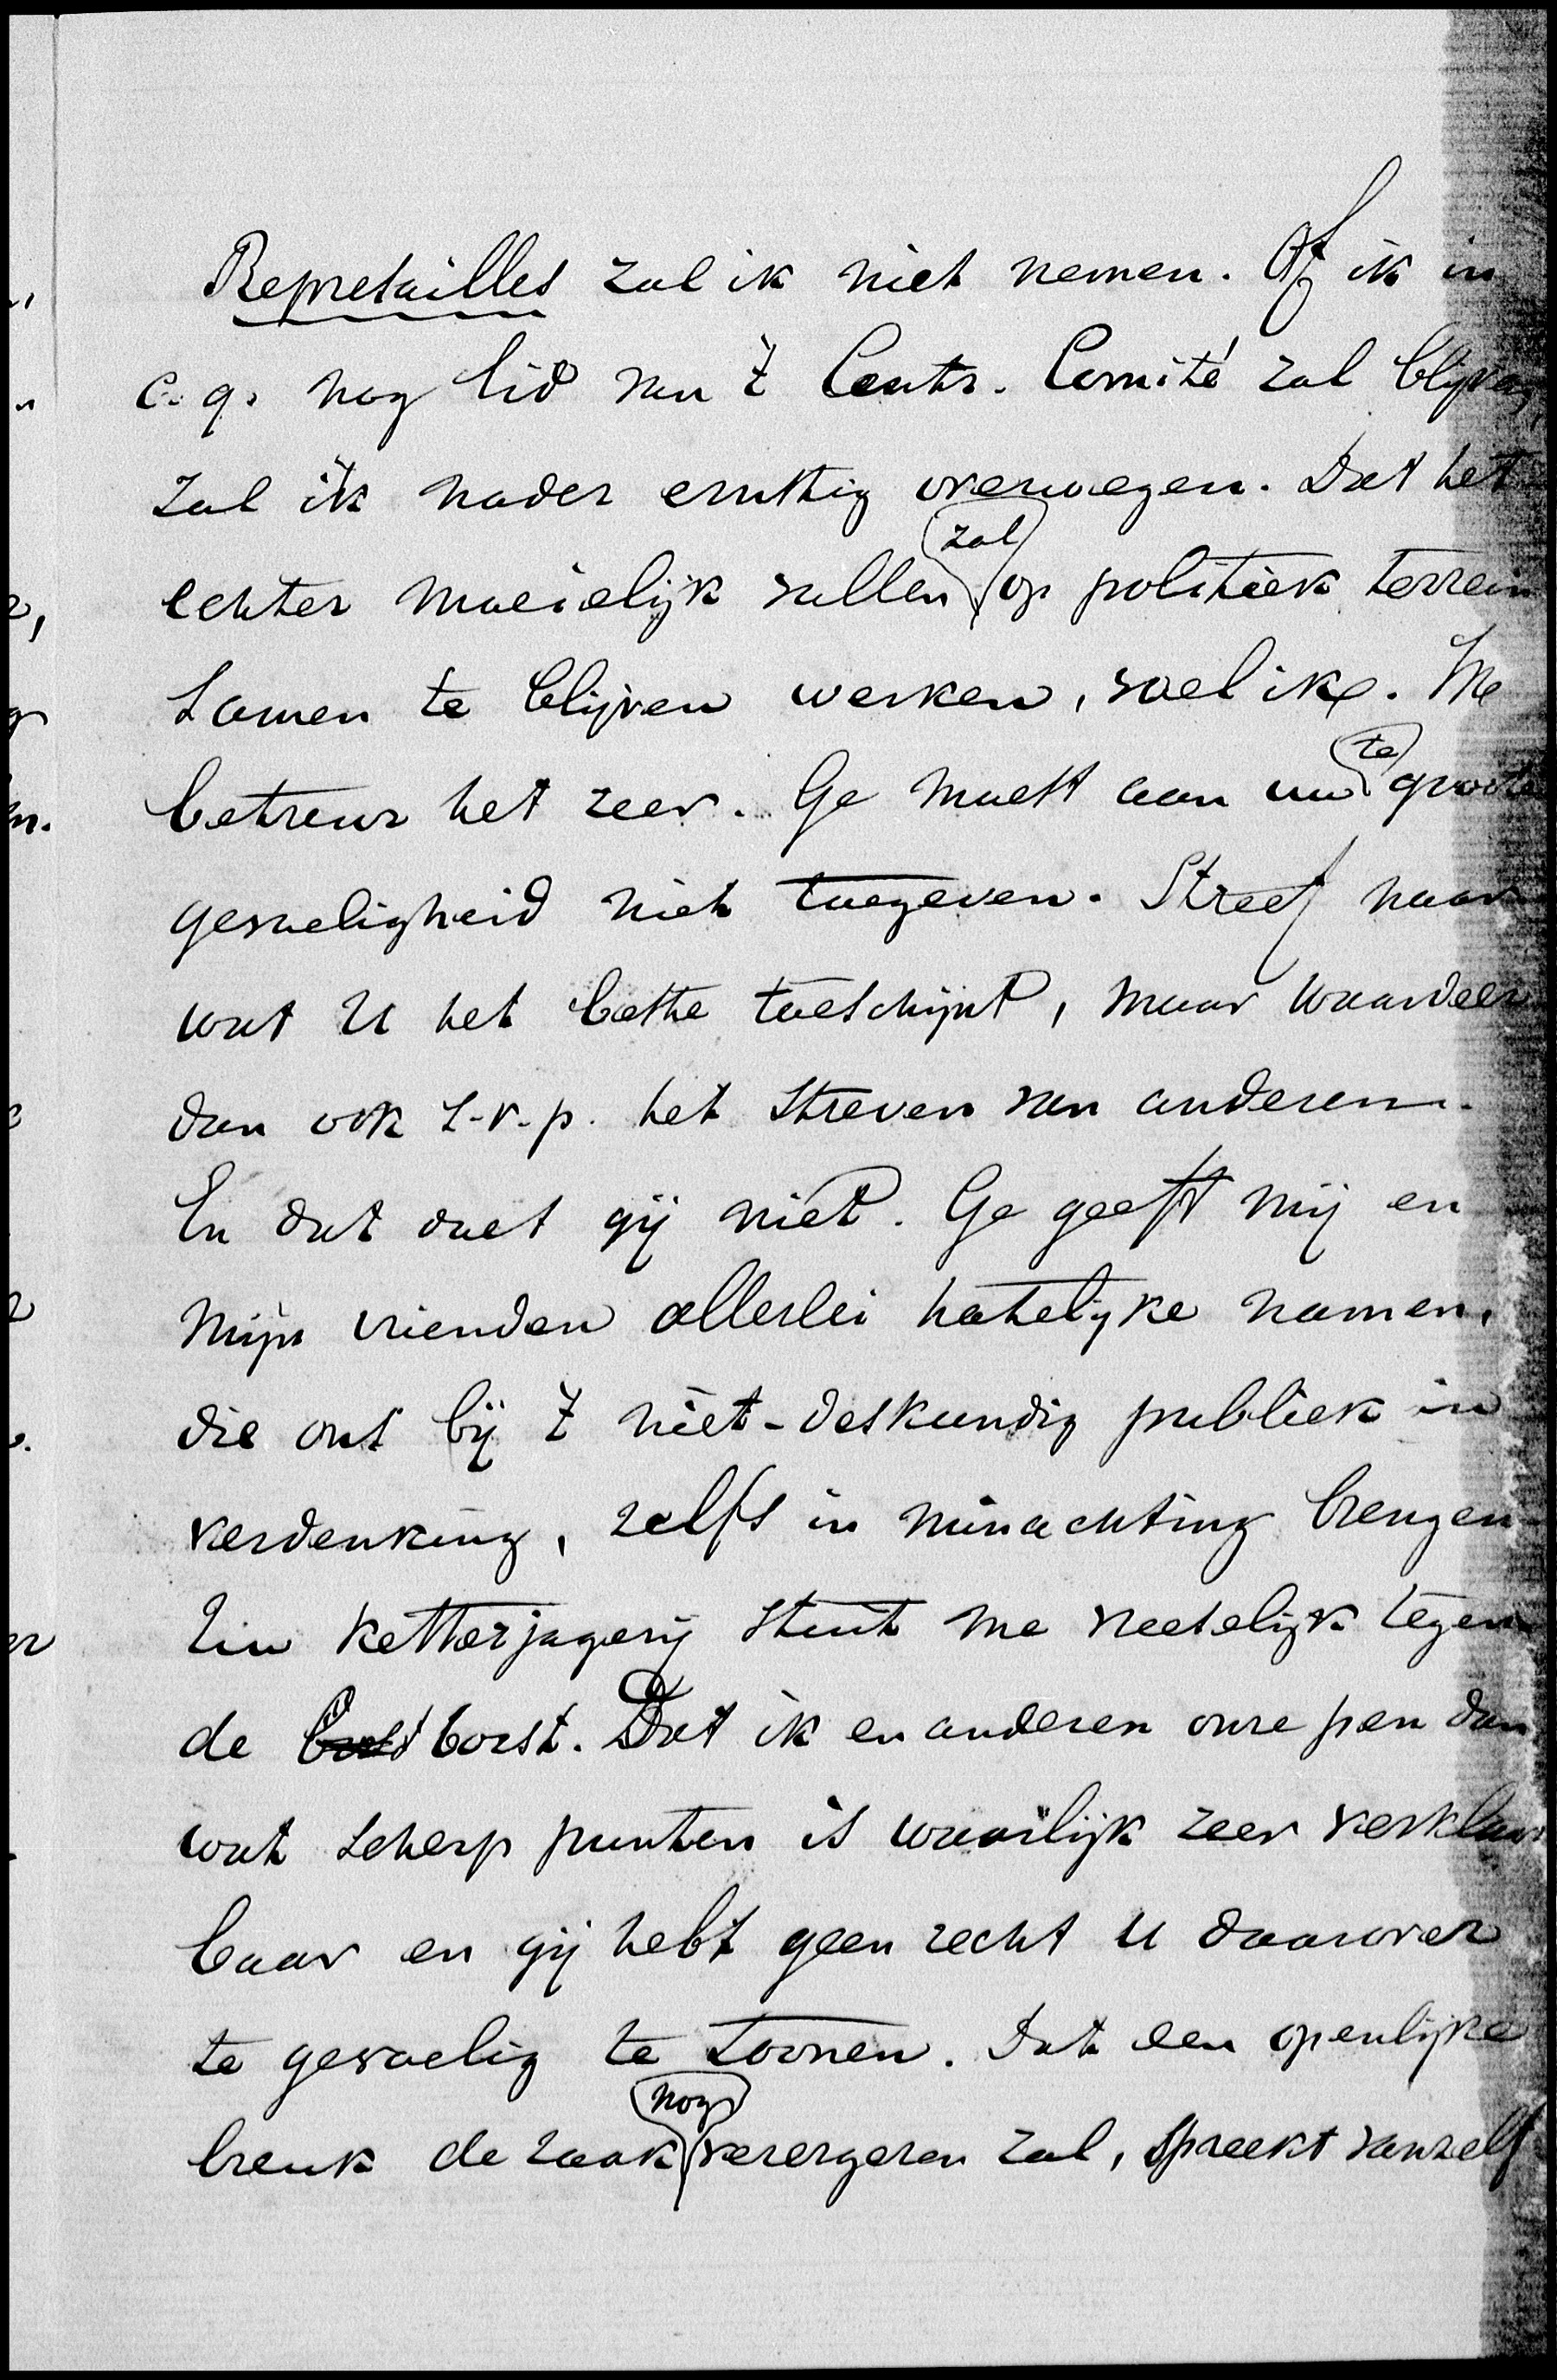 Represailles zal ik niet nemen. Of ik in
c.q. nog lid van 't Centr. Comité zal blijven,
zal ik nader ernstig overwegen. Dat het
echter moeielijk vallen zal op politiek terrein
samen te blijven werken, voel ik. Me
betreur het zeer. Ge moest aan uw te groote
gevoeligheid niet toegeven. Streef naar
wat U het beste toeschijnt, maar waardeer
dan ook s.v.p. het streven van anderen.
En dat doet gij niet. Ge geeft mij en
mijn vrienden allerlei hatelijke namen,
die ons bij 't niet-deskundig publiek in
verdenking, zelfs in minachting brengen.
Uw ketterjagerij stuit me vreeselijk tegen
de borst. Dat ik en anderen onze pen dan
wat scherp punten is waarlijk zeer verklaar
baar en gij hebt geen recht U daarover
te gevoelig te toonen. Dat een openlijke
breuk de zaak nog verergeren zal, spreekt vanzelf